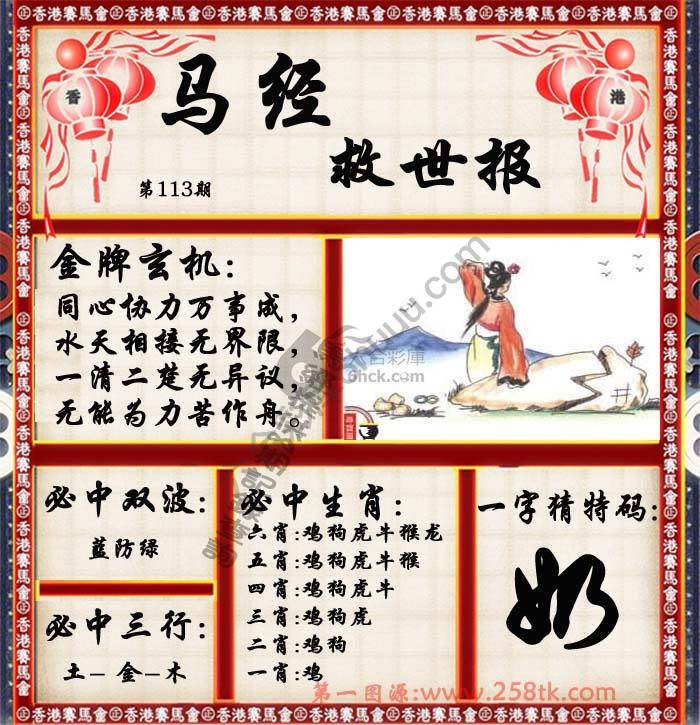 香港
马经
救世报
第113期
金牌玄机:
同心协力万事成,
水天相接无界限,
一清二楚无异议,
无能为力苦作舟。
六合彩庫
6hck.com
必中双波:
蓝防绿
必中三行:
土-金-木
必中生肖:
六肖:鸡狗虎牛猴龙
五肖:鸡狗虎牛猴
四肖:鸡狗虎牛
三肖:鸡狗虎
二肖:鸡狗
一肖:鸡
一字猜特码:
奶
第一图源:www.258tk.com
香港賽馬會